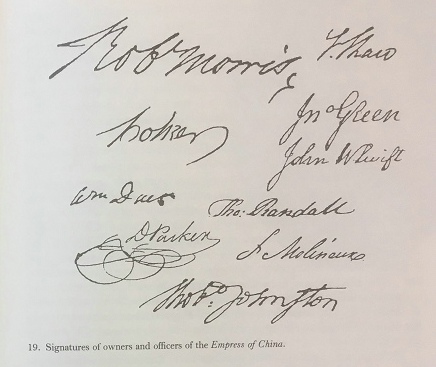 Rob Morris S. Shaw
holker Jno Green
John W Swift
Wm Duer Tho: Randall
D Parker F Molineux
Rob.t Johnston
19. Signatures of owners and officers of the Empress of China.